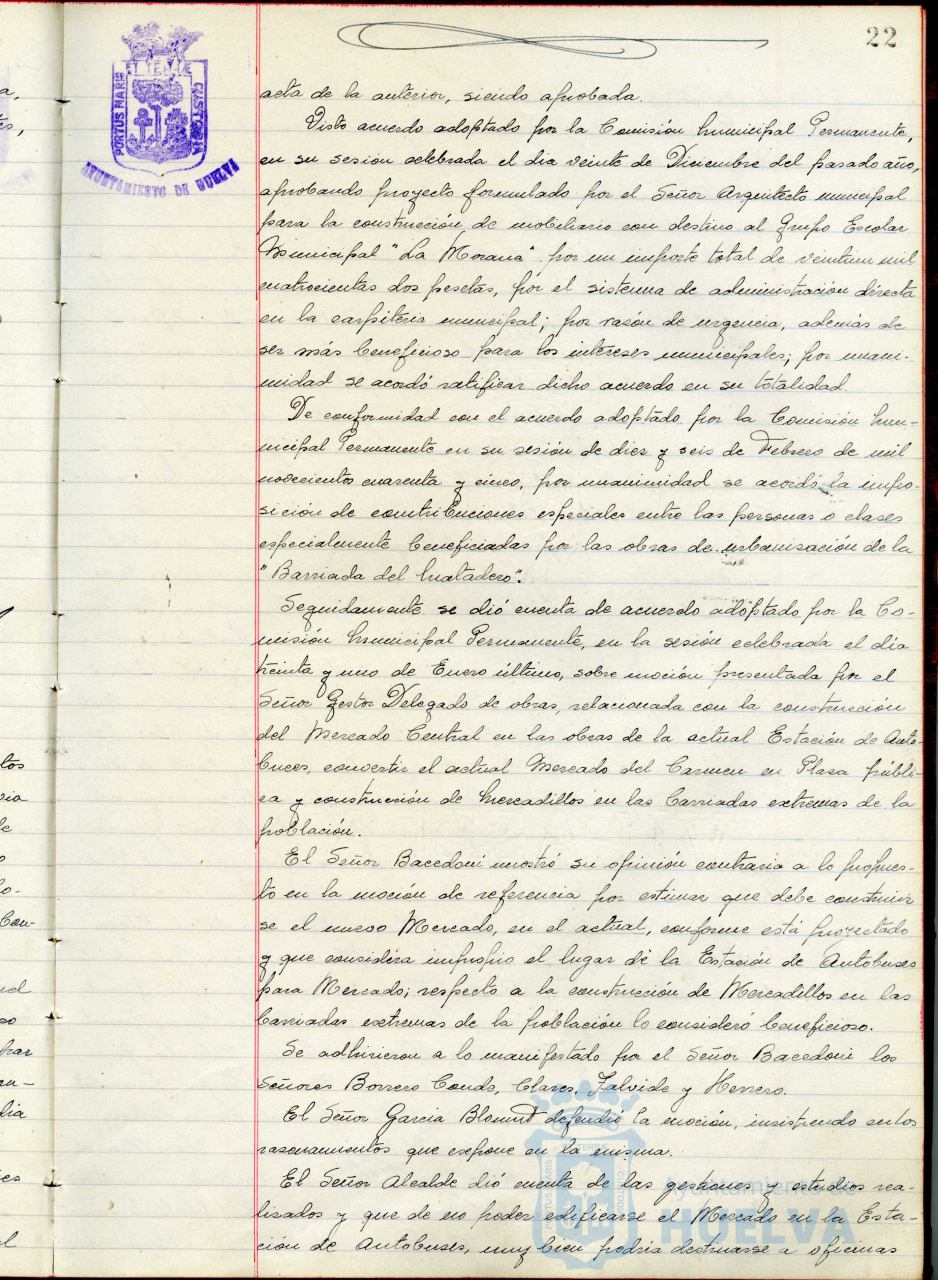 22
PORTUS MARIS
ET TERRE
CUSTODIA
AYUNTAMIENTO DE HUELVA
acta de la anterior, siendo aprobada.
Visto acuerdo adoptado por la Comisión Municipal Permanente,
en su sesión celebrada el dia veinte de Diciembre del pasado año,
aprobando proyecto formulado por el Señor Arquitecto municipal
para la construcción de mobiliario con destino al Grupo Escolar
Municipal "La Morana" por un importe total de veintiun mil
cuatrocientas dos pesetas, por el sistema de administración directa
en la carpiteria municipal; por rasón de urgencia, además de
ser más beneficioso para los intereses municipales; por unani-
midad se acordó ratificar dicho acuerdo en su totalidad.
De conformidad con el acuerdo adoptado por la Comisión Mu-
nicipal Permanente en su sesión de dies y seis de Febrero de mil
novecientos cuarenta y cinco, por unanimidad se acordó la impo-
sición de contribuciones especiales entre las personas o clases
especialmente beneficiadas por las obras de urbanisación de la
"Barriada del Matadero".
Seguidamente se dió cuenta de acuerdo adoptado por la Co-
misión Municipal Permanente, en la sesión celebrada el día
treinta y uno de Enero último, sobre moción presentada por el
Señor Gestor Delegado de obras, relacionada con la construcción
del Mercado Central en las obras de la actual Estación de Auto-
buces, convertir el actual Mercado del Carmen en Plasa públi-
ca y construcción de Mercadillos en las barriadas extremas de la
población.
El Señor Bacedoni mostró su opinión contraria a lo propues-
to en la moción de referencia por estimar que debe construir
se el nuevo Mercado, en el actual, conforme está proyectado
y que considera impropio el lugar de la Estación de Autobuses
para Mercado; respecto a la construcción de Mercadillos en las
barriadas extremas de la población lo consideró beneficioso.
Se adhirieron a lo manifestado por el Señor Bacedoni los
Señores Borrero Conde, Clares, Jalvide y Herrero.
El Señor Garcia Blount defendió la moción, insistiendo en los
rasonamientos que expone en la misma.
El Señor Alcalde dió cuenta de las gestiones y estudios rea-
lisados y que de no poder edificarse el Mercado en la Esta-
ción de Autobuses, muy bien podria destinarse a oficinas
Ayuntamiento
HUELVA